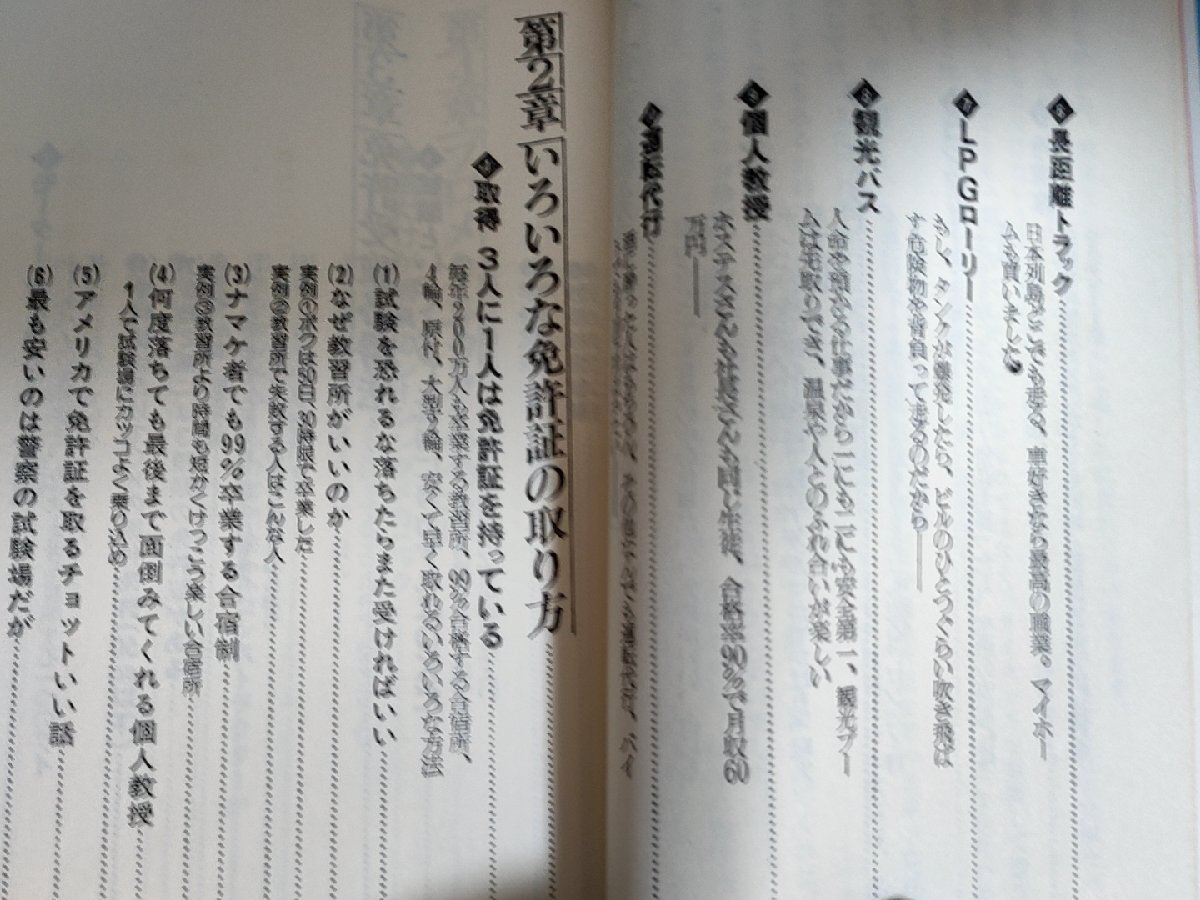 ❻長距離トラック
日本列島どこでも走る、車好きなら最高の職業。マイホー
ムも買いました。
❼LPGローリー
もし、タンクが爆発したら、ビルのひとつぐらい吹き飛ば
す危険物を背負って走るのだから——
❽観光バス
人命を預かる仕事だから一にも二にも安全第一、観光ブー
ムは先取りでき、温泉や人とのふれ合いが楽しい
❾個人教授
ホステスさんも社長さんも同じ生徒、合格率90%で月収60
万円——
運転代行
第2章 いろいろな免許証の取り方
取得 3人に1人は免許証を持っている
毎年200万人も卒業する教習所、99%合格する合宿所、
4輪、原付、大型2輪、安くて早く取れるいろいろな方法
(1)試験を恐れるな落ちたらまた受ければいい
(2)なぜ教習所がいいのか
実例①ボクは30日、30時限で卒業した
実例②教習所で失敗する人はこんな人
(3)ナマケ者でも99%卒業する合宿制
実例③教習所より時間も短かくけっこう楽しい合宿所
(4)何度落ちても最後まで面倒みてくれる個人教授
1人で試験場にカッコよく乗り込め
(5)アメリカで免許証を取るチョットいい話
(6)最も安いのは警察の試験場だが